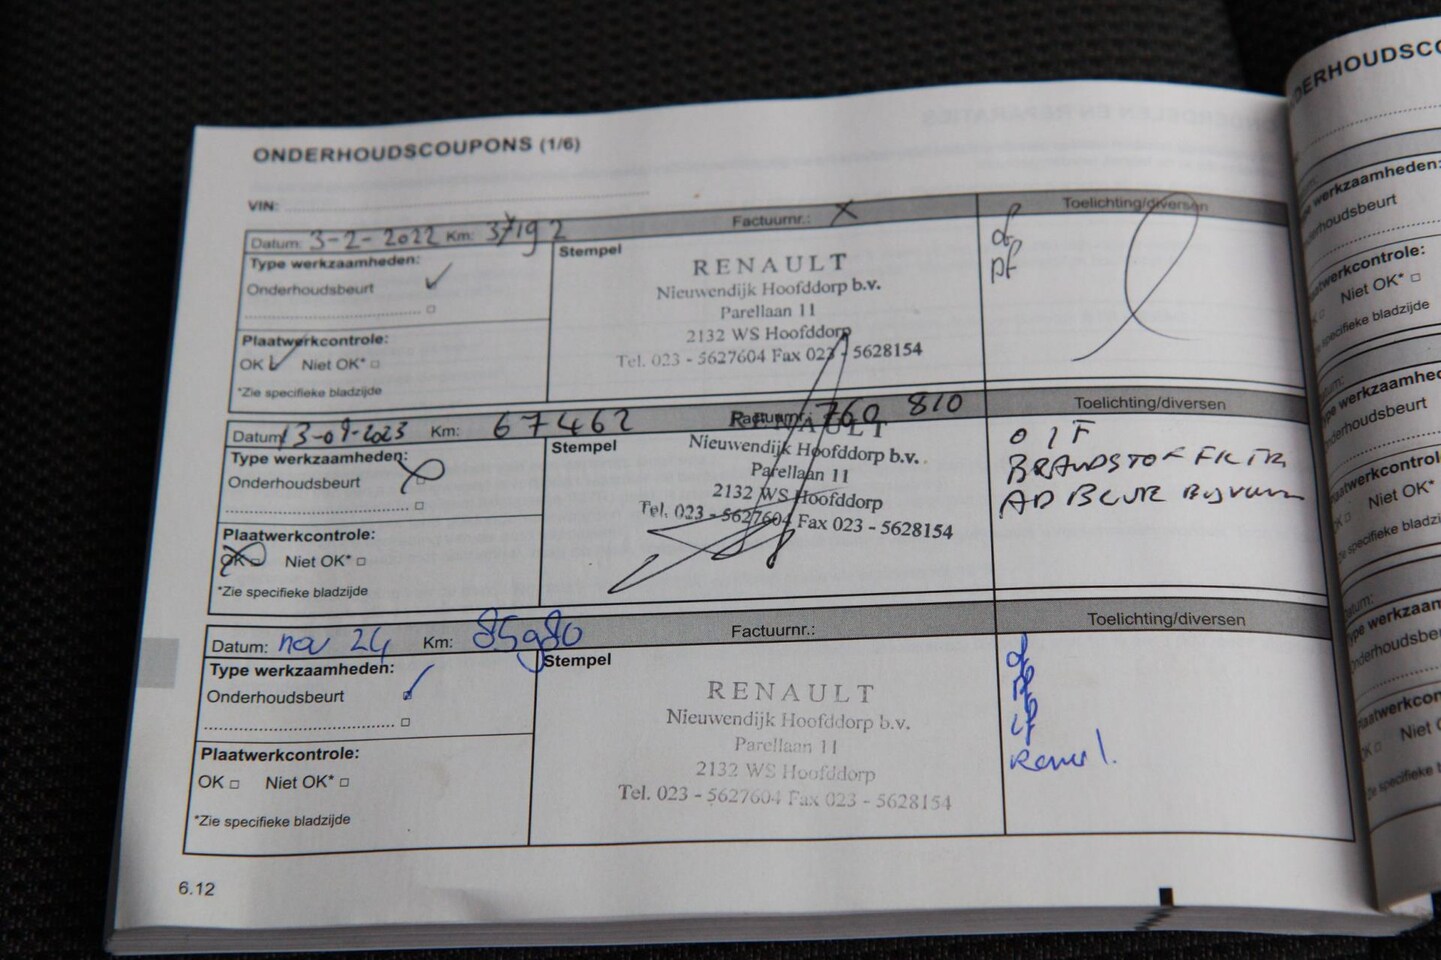 ONDERHOUDSCOUPONS (1/6)
VIN:
Datum: 3-2-2022 Km: 37192 Factuurnr.: X Toelichting/diversen
Type werkzaamheden:
Onderhoudsbeurt
Plaatwerkcontrole:
OK Niet OK*
*Zie specifieke bladzijde
Stempel
RENAULT
Nieuwendijk Hoofddorp b.v.
Parellaan 11
2132 WS Hoofddorp
Tel. 023 - 5627604 Fax 023 - 5628154
of
pf
Datum 13-09-2023 Km: 67462 Factuurnr. 760 810 Toelichting/diversen
Type werkzaamheden:
Onderhoudsbeurt
Plaatwerkcontrole:
OK Niet OK*
*Zie specifieke bladzijde
Stempel
RENAULT
Nieuwendijk Hoofddorp b.v.
Parellaan 11
2132 WS Hoofddorp
Tel. 023 - 5627604 Fax 023 - 5628154
BRANDSTOF FILTER
AD BLUE
Datum: nov 24 Km: 85980 Factuurnr.: Toelichting/diversen
Type werkzaamheden:
Onderhoudsbeurt
Plaatwerkcontrole:
OK Niet OK*
*Zie specifieke bladzijde
Stempel
RENAULT
Nieuwendijk Hoofddorp b.v.
Parellaan 11
2132 WS Hoofddorp
Tel. 023 - 5627604 Fax 023 - 5628154
of
lf
6.12
Type werkzaamheden:
Niet OK*
specifieke bladzijde